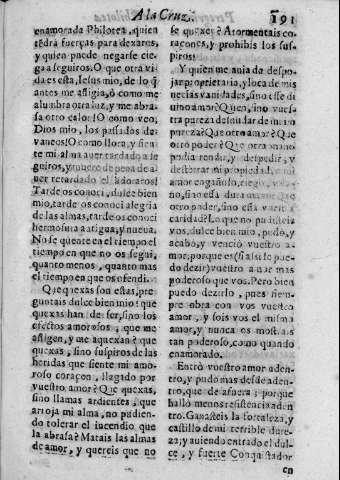 A la Cruz.
191
enamorada Philotea, quien
tẽdrà fuerças para dexaros,
y quien puede negarse cie-
ga a seguiros. O que otra vi-
da es esta, Iesus mio, de lo q̃
antes me afligia, ò como me
alũbra otra luz, y me abra-
sa otro calor! O como veo,
Dios mio, los passados de-
vaneos! O como lloro, y sien
te mi alma auer tardado a se
guiros, y muero de pena de a-
uer retardado el adoraros!
Tarde os conoci, dulce bien
mio, tarde os conoci alegria
de las almas, tarde os conoci
hermosura antigua, y nueua.
No se quente en el tiempo el
tiempo en que no os segui,
quanto menos, quanto mas
el tiempo en que os ofendi.
Que quexas son estas, pre
guntais dulce bien mio? que
quexas han de ser, sino los
efectos amorosos, que me
afligen, y me aquexan? que
quexas, sino suspiros de las
heridas que siente mi amo-
roso coraçon, llagado por
vuestro amor? Que quexas,
sino llamas ardientes, que
arroja mi alma, no pudien-
do tolerar el incendio que
la abrasa? Matais las almas
de amor, y quereis que no
se quexẽ? Atormentais co-
raçones, y prohibis los sus-
piros?
Y quien me auia de despo-
jar propietaria, y loca de mis
necias vanidades, sino esse di
uino amor? Quien, sino vues-
tra pureza desnudar de mi im
pureza? Que otro amar? Que
otro poder? Que otra mano
podia rendir, y despedir, y
desterrar mi propiedad, y mi
amor engañoso, ciego, va-
no, sino essa dura mano? Que
otro poder, sino essa vuestra
caridad? Lo que no pudisteis
vos, dulce bien mio, pudo, y
acabò, y venciò vuestro a-
mor, porque es (si assi se pue-
do dezir) vuestro amor mas
poderoso que vos. Pero bien
puedo dezirlo, pues siem-
pre obra con vos vuestro
amor, y sois vos el mismo
amor, y nunca os mostrais
tan poderoso, como quando
enamorado.
Entrò vuestro amor aden-
tro, y pudo mas desde aden-
tro, que de afuera; porque
hallò menos resistencia aden
tro. Ganasteis la fortaleza, y
castillo de mi terrible dure-
za, y auiendo entrado el dul-
ce, y fuerte Conquistador
en